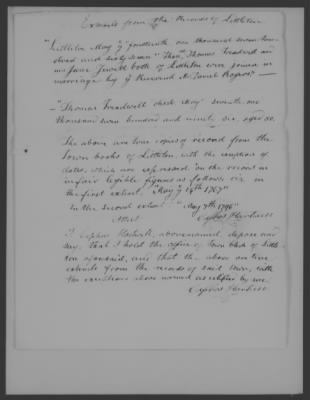 Extracts from the Records of Littleton
"Littleton May ye fourteenth one thousand seven hun-
dred and sixty seven" Then Thomas Treadwell and
Jewett both of Littleton were joined in
marriage by ye Reverend Mr Daniel Rogers" —
— "Thomas Treadwell died May seventh one
thousand seven hundred and ninety six, aged 50.
The above are true copies of record from the
Town books of Littleton, with the exception of
dates, which are expressed on the record in
in fair legible figures as follows viz in
the first extract, "May ye 14th 1767"
In the second extract "May 7th 1796"
Attest
I above named, depose and
say, that I hold the office of Town Clerk of Litt-
leton aforesaid, and that the above are true
extracts from the records of said town, with
the exceptions above named as certified by me.